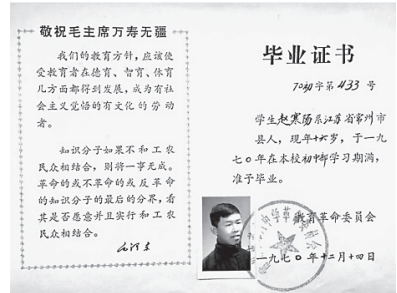 敬祝毛主席万寿无疆
我们的教育方针，应该使
受教育者在德育、智育、体育
几方面都得到发展，成为有社
会主义觉悟的有文化的劳动
者。
知识分子如果不和工农
民众相结合，则将一事无成。
革命的或不革命的或反革命
的知识分子的最后的分界，看
其是否愿意并且实行和工农
民众相结合。
毛泽东
毕业证书
70初字第433号
学生赵寒阳系江苏省常州市
县人，现年十六岁，于一九
七〇年在本校初中部学习期满，
准予毕业。
教育革命委员会
一九七〇年十二月十四日